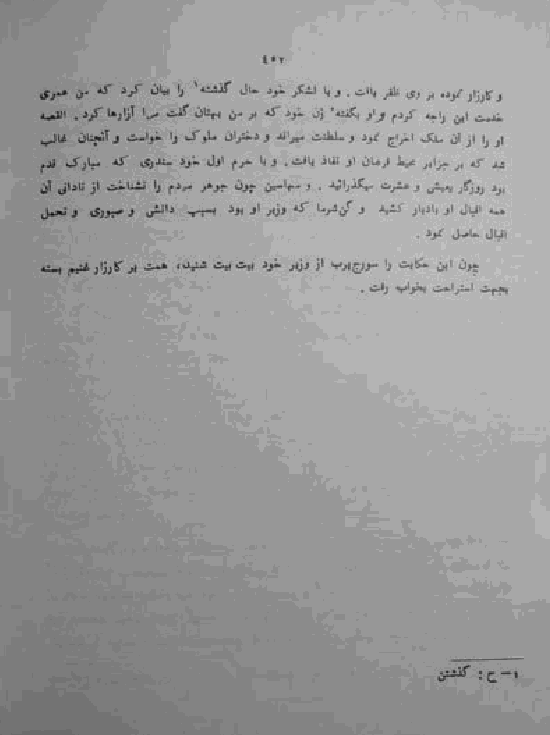 ٤٥٢
و کارزار نموده بر وی ظفر یافت. و با لشکر خود حال گذشته¹ را بیان کرد که من همه‌ی
خدمت این راجه کردم و او بگفتهٔ زن خود که بر من بهتان گفت مرا آزارها کرد. القصه
او را از آن ملک اخراج نمود و سلطنت میراند و دختران ملوک را خواست و آنچنان غالب
شد که بر جزایر محیط فرمان او نفاذ یافت. و با حرم اول خود مندری که مبارک قدم
بود روزگار بعیش و عشرت میگذرانید. و مهاسین چون جوهر مردم را نشناخت از نادانی آن
همه اقبال او بادبار کشید و گن‌شرما که وزیر او بود بسبب دانش و صبوری و تحمل
اقبال حاصل نمود.
چون این حکایت را سورج‌پرب از وزیر خود بیت بیت شنید، همت بر کارزار غنیم بسته
بجهت استراحت بخواب رفت.
۱ـ ح: گذشتن